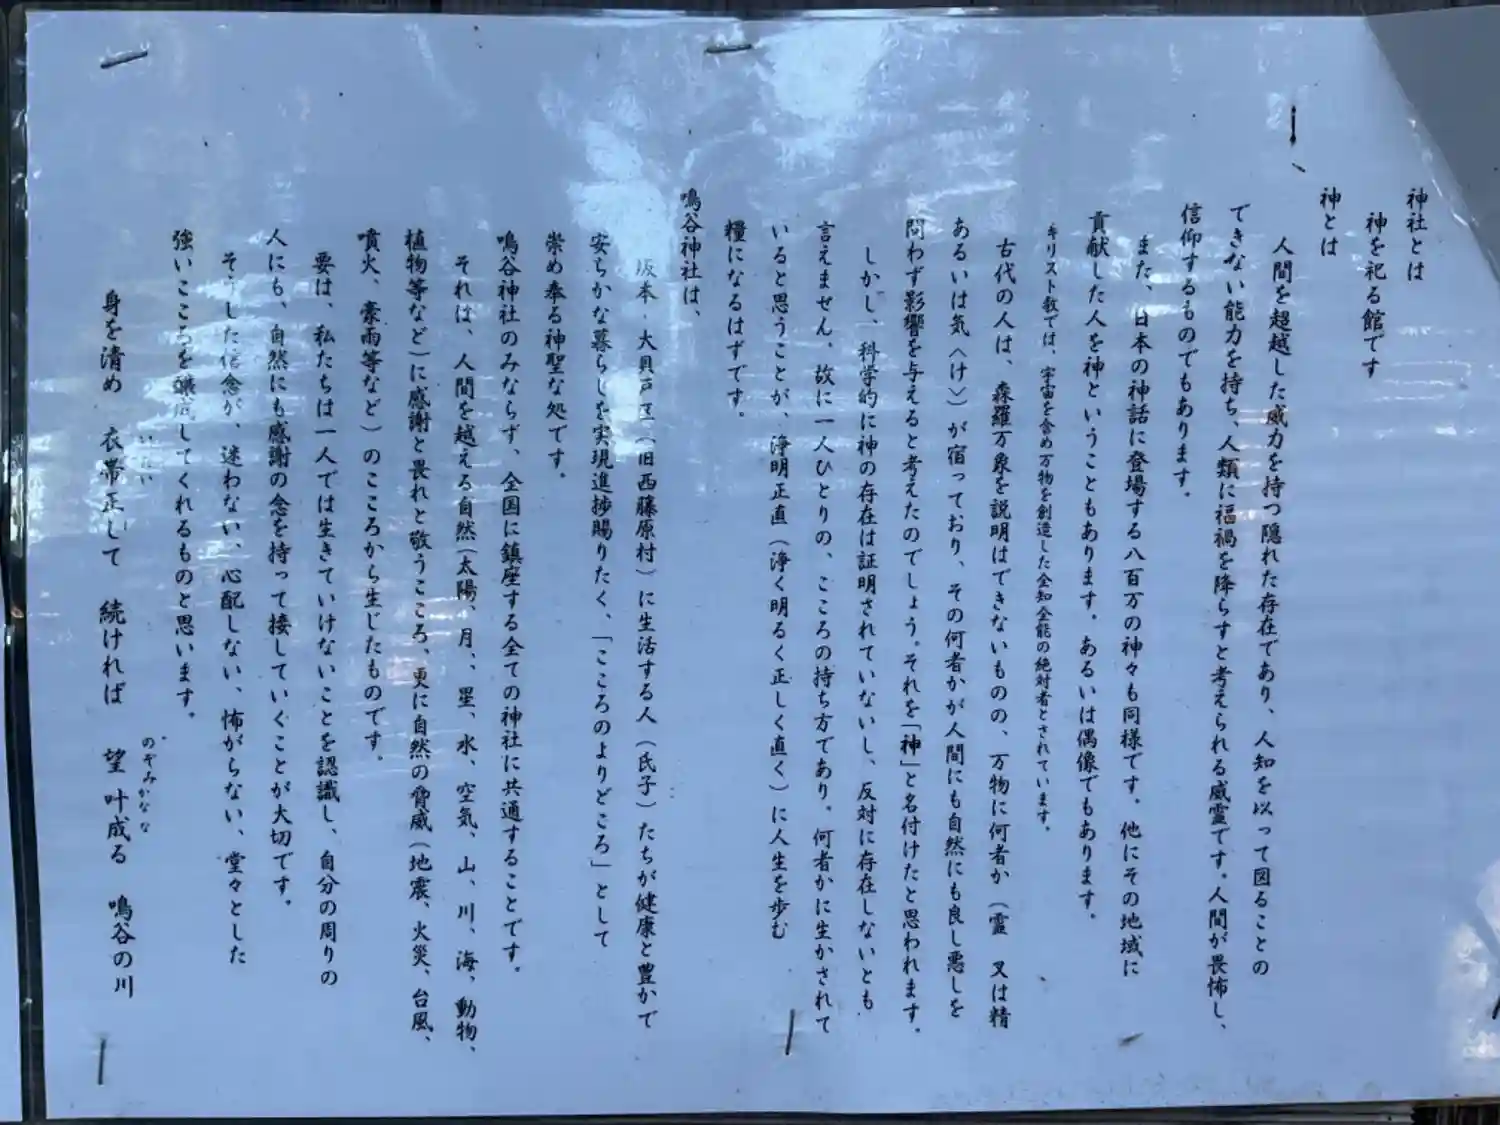 神社とは
神を祀る館です
神とは
人間を超越した威力を持つ隠れた存在であり、人知を以って図ることの
できない能力を持ち、人類に福禍を降らすと考えられる威霊です。人間が畏怖し、
信仰するものでもあります。
また、日本の神話に登場する八百万の神々も同様です。他にその地域に
貢献した人を神ということもあります。あるいは偶像でもあります。
キリスト教では、宇宙を含め万物を創造した全知全能の絶対者とされています。
古代の人は、森羅万象を説明はできないものの、万物に何者か(霊 又は精
あるいは気〈け〉)が宿っており、その何者かが人間にも自然にも良し悪しを
問わず影響を与えると考えたのでしょう。それを「神」と名付けたと思われます。
しかし、科学的に神の存在は証明されていないし、反対に存在しないとも
言えません。故に一人ひとりの、こころの持ち方であり。何者かに生かされて
いると思うことが、浄明正直(浄く明るく正しく直く)に人生を歩む
糧になるはずです。
鳴谷神社は、
坂本・大貝戸区(旧西藤原村)に生活する人(氏子)たちが健康と豊かで
安らかな暮らしを実現進捗賜りたく、「こころのよりどころ」として
崇め奉る神聖な処です。
鳴谷神社のみならず、全国に鎮座する全ての神社に共通することです。
それは、人間を越える自然(太陽、月、星、水、空気、山、川、海、動物、
植物等など)に感謝と畏れと敬うこころ、更に自然の脅威(地震、火災、台風、
噴火、豪雨等など)のこころから生じたものです。
要は、私たちは一人では生きていけないことを認識し、自分の周りの
人にも、自然にも感謝の念を持って接していくことが大切です。
そうした信念が、迷わない、心配しない、怖がらない、堂々とした
強いこころを醸成してくれるものと思います。
身を清め 衣帯正して 続ければ 望叶成る 鳴谷の川
のぞみかなな